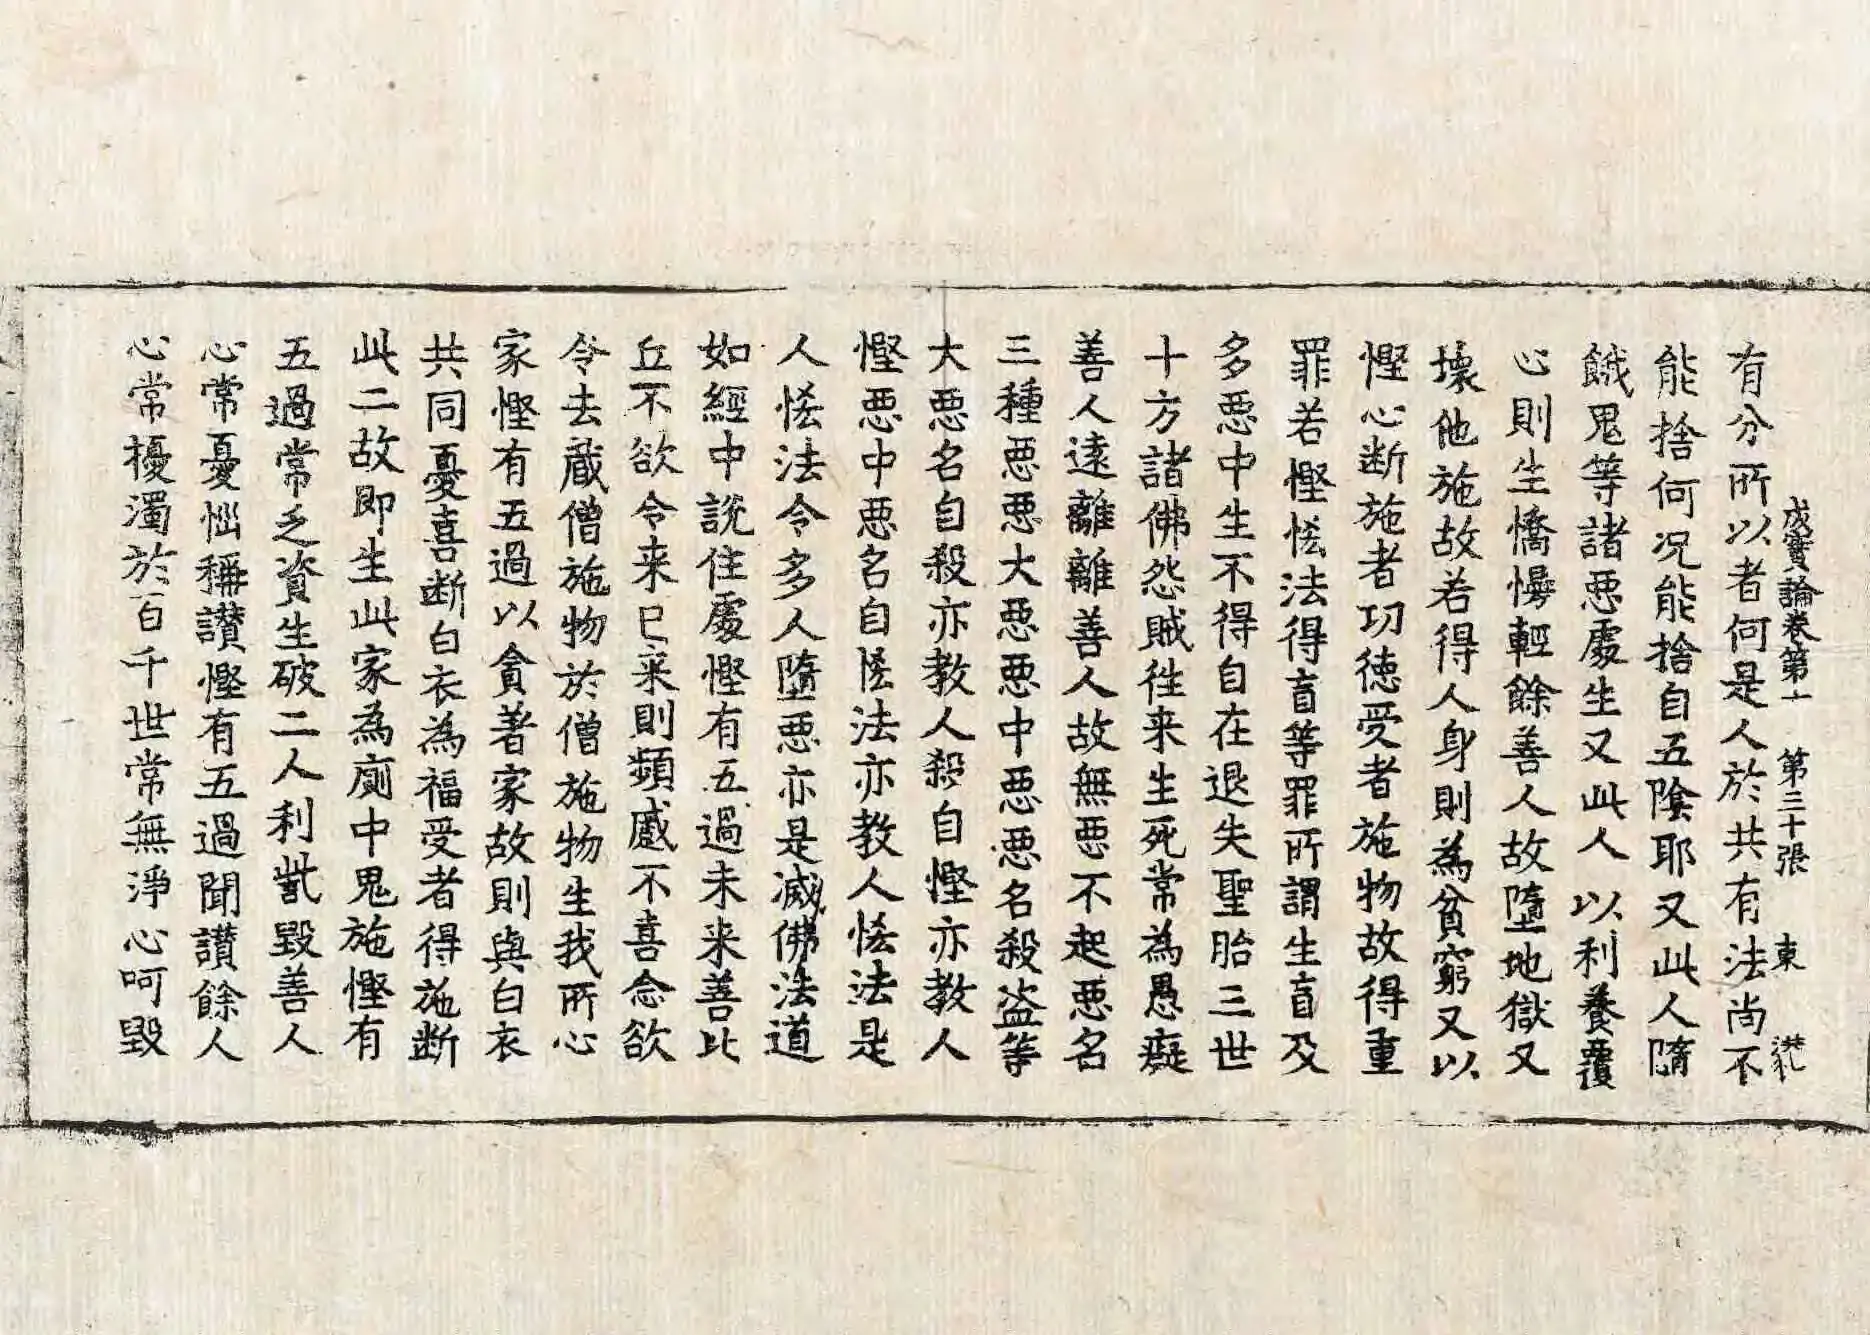 成實論卷第十 第三十張 東
有分所以者何是人於共有法尚不
能捨何况能捨自五陰耶又此人墮
餓鬼等諸惡處生又此人以利養覆
心則生憍慢輕餘善人故墮地獄又
壞他施故若得人身則為貧窮又以
慳心断施者功徳受者施物故得重
罪若慳恡法得盲等罪所謂生盲及
多惡中生不得自在退失聖胎三世
十方諸佛怨賊往来生死常為愚癡
善人遠離離善人故無惡不起惡名
三種惡惡大惡惡中惡惡名殺盗等
大惡名自殺亦教人殺自慳亦教人
慳惡中惡名自恡法亦教人恡法是
人恡法令多人墮惡亦是滅佛法道
如經中說住處慳有五過未来善比
丘不欲令来已来則頻慼不喜念欲
令去蔵僧施物於僧施物生我所心
家慳有五過以貪著家故則與白衣
共同憂喜断白衣為福受者得施断
此二故即生此家為廁中鬼施慳有
五過常乏資生破二人利呰毀善人
心常憂惱稱讃慳有五過聞讃餘人
心常擾濁於百千世常無淨心呵毀